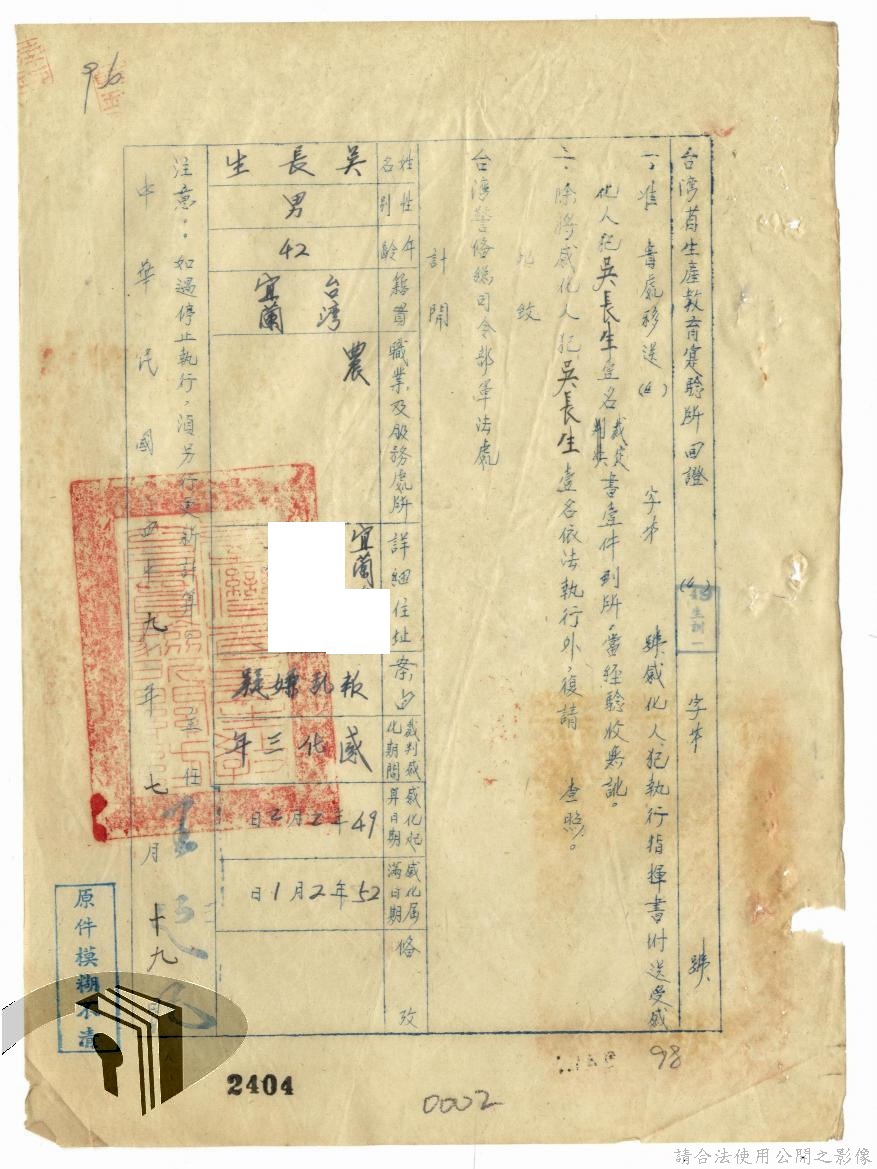 96
台灣省生產教育實驗所回證
生訓一
字第
號
一、准 貴處移送
字第
號感化人犯執行指揮書附送受感
化人犯吳長生壹名裁定
判決書壹件到所,當經驗收無訛。
二、除將感化人犯吳長生壹名依法執行外,復請 查照。
此致
台灣警備總司令部軍法處
計開
姓名
性別
年齡
籍貫
職業及服務處所
詳細住址
案由
裁判感化期間
感化起算日期
感化屆滿日期
備攷
吳長生
男
42
台灣宜蘭
農
宜蘭
叛亂嫌疑
感化三年
49年2月2日
52年2月1日
注意:如遇停止執行,須另行更新計算。
主任
中華民國四十九年七月十九日
原件模糊不清
2404
0002
98
請合法使用公開之影像